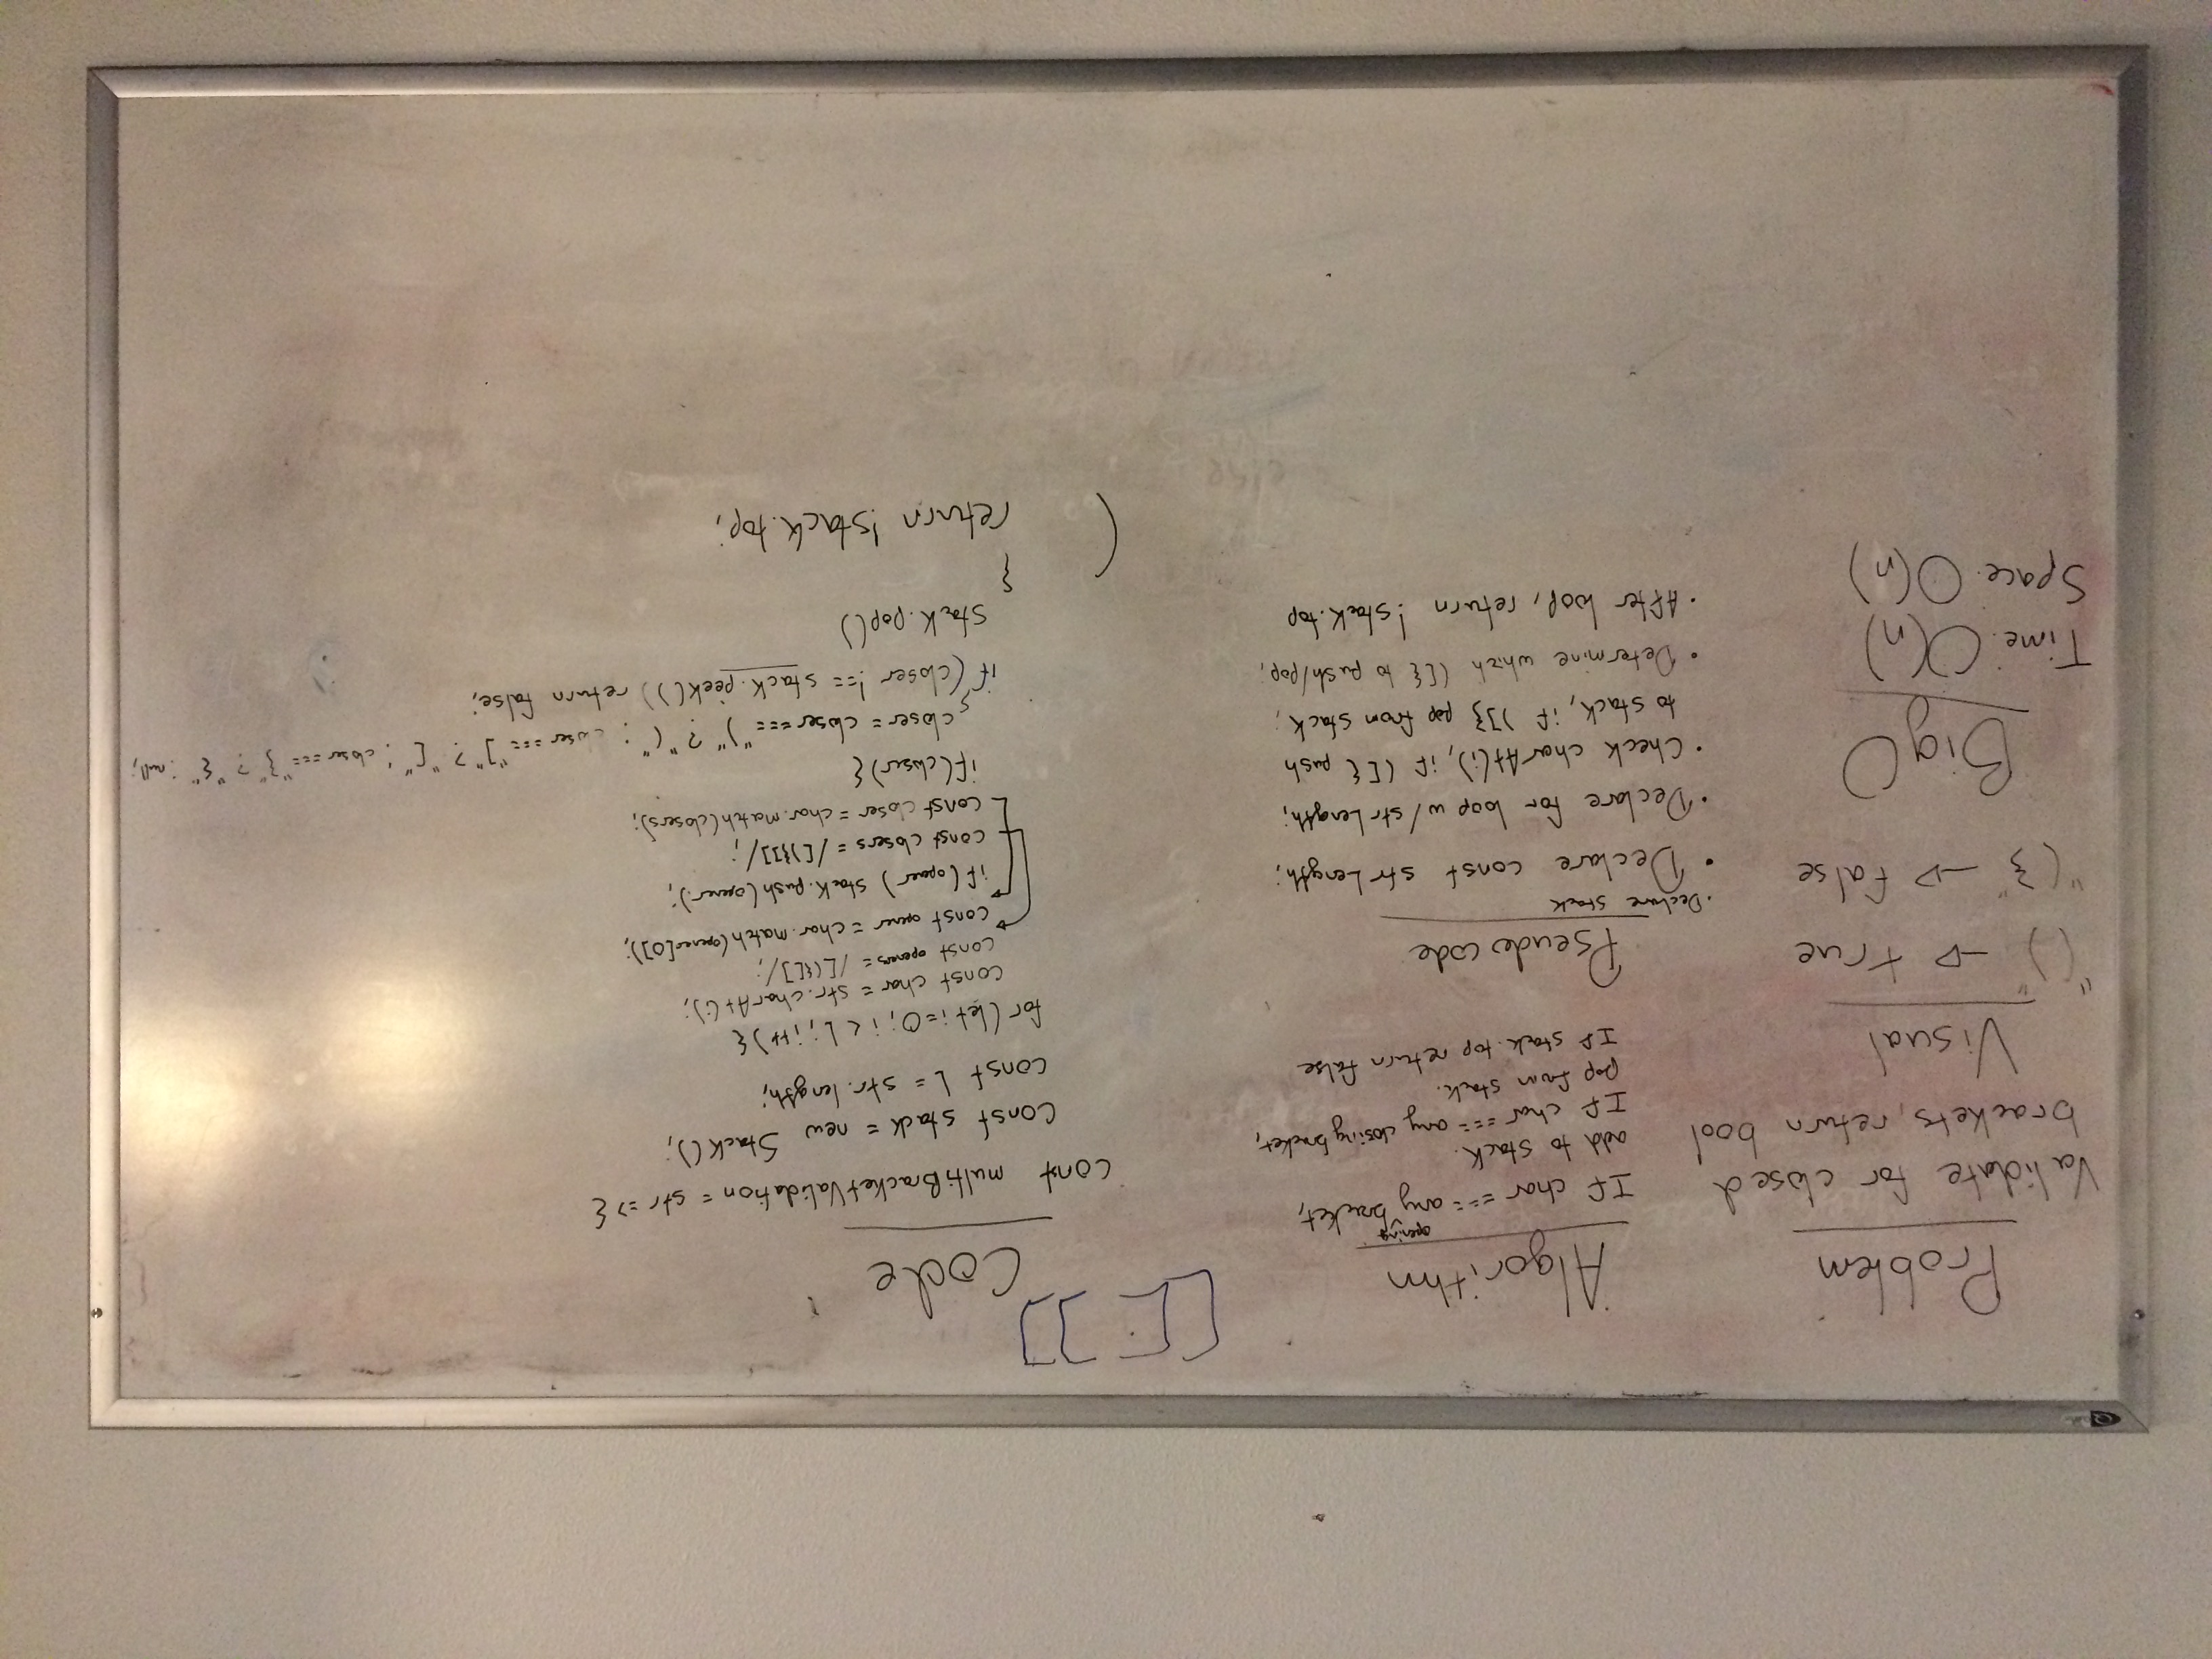 Problem
Validate for closed
brackets, return bool
Visual
"()" → true
"(}" → false
Big O
Time: O(n)
Space: O(n)
Algorithm
opening
If char === any bracket,
add to stack.
If char === any closing bracket,
pop from stack.
If stack.top return false
Pseudocode
· Declare stack
· Declare const strLength;
· Declare for loop w/ strLength;
· Check charAt(i), if ([{ push
to stack, if )]} pop from stack;
· Determine which ([{ to push/pop;
· After loop, return !stack.top
[[ ]]
Code
const multiBracketValidation = str => {
const stack = new Stack();
const L = str.length;
for (let i=0; i < L; i++) {
const char = str.charAt(i);
const openers = /[({[]/;
const opener = char.match(opener[0]);
if (opener) stack.push(opener);
const closers = /[)}]]/;
const closer = char.match(closers);
if(closer) {
closer = closer === ")" ? "(" : closer === "]" ? "[" : closer === "}" ? "{" : null;
}
if (closer !== stack.peek()) return false;
stack.pop()
}
( return !stack.top;